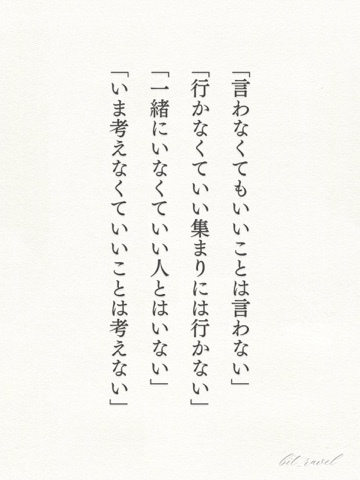 「言わなくてもいいことは言わない」
「行かなくていい集まりには行かない」
「一緒にいなくていい人とはいない」
「いま考えなくていいことは考えない」